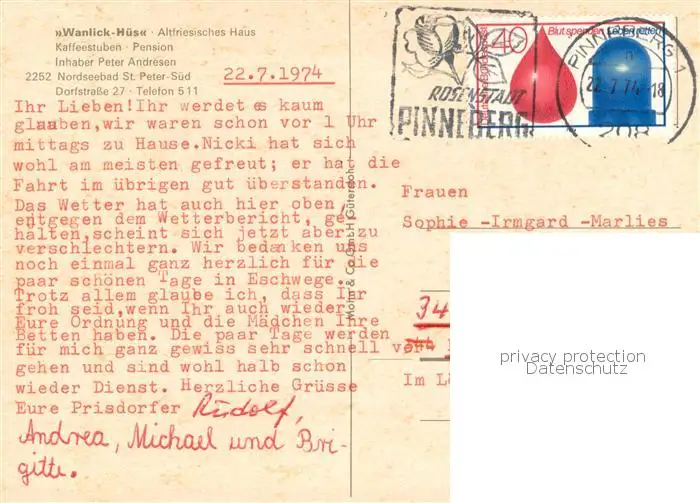 »Wanlick-Hüs« · Altfriesisches Haus
Kaffeestuben · Pension
Inhaber Peter Andresen
2252 Nordseebad St. Peter-Süd
Dorfstraße 27 · Telefon 511
22.7.1974
Ihr Lieben!Ihr werdet es kaum
glauben,wir waren schon vor 1 Uhr
mittags zu Hause.Nicki hat sich
wohl am meisten gefreut; er hat die
Fahrt im übrigen gut überstanden.
Das Wetter hat auch hier oben,
entgegen dem Wetterbericht, ge-
halten,scheint sich jetzt aber zu
verschlechtern. Wir bedanken uns
noch einmal ganz herzlich für die
paar schönen Tage in Eschwege.
Trotz allem glaube ich, dass Ihr
froh seid,wenn Ihr auch wieder
Eure Ordnung und die Mädchen Ihre
Betten haben. Die paar Tage werden
für mich ganz gewiss sehr schnell ver-
gehen und sind wohl halb schon
wieder Dienst. Herzliche Grüsse
Eure Prisdorfer Rudolf,
Andrea, Michael und Bri-
gitte.
Mohn & Co GmbH, Gütersloh
ROSENSTADT
PINNEBERG
40
Blut spenden Leben retten
PINNEBERG 1
22.7.74-18
208
Frauen
Sophie -Irmgard -Marlies
34
Im
privacy protection
Datenschutz